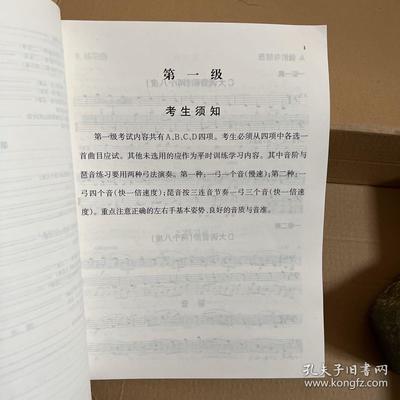 1
第一级
考生须知
第一级考试内容共有A、B、C、D四项。考生必须从四项中各选一
首曲目应试。其他未选用的应作为平时训练学习内容。其中音阶与
琶音练习要用两种弓法演奏。第一种:一弓一个音(慢速);第二种:一
弓四个音(快一倍速度);琶音按三连音节奏一弓三个音(快一倍速
度)。重点注意正确的左右手基本姿势、良好的音质与音准。
孔夫子旧书网
www.kongfz.com